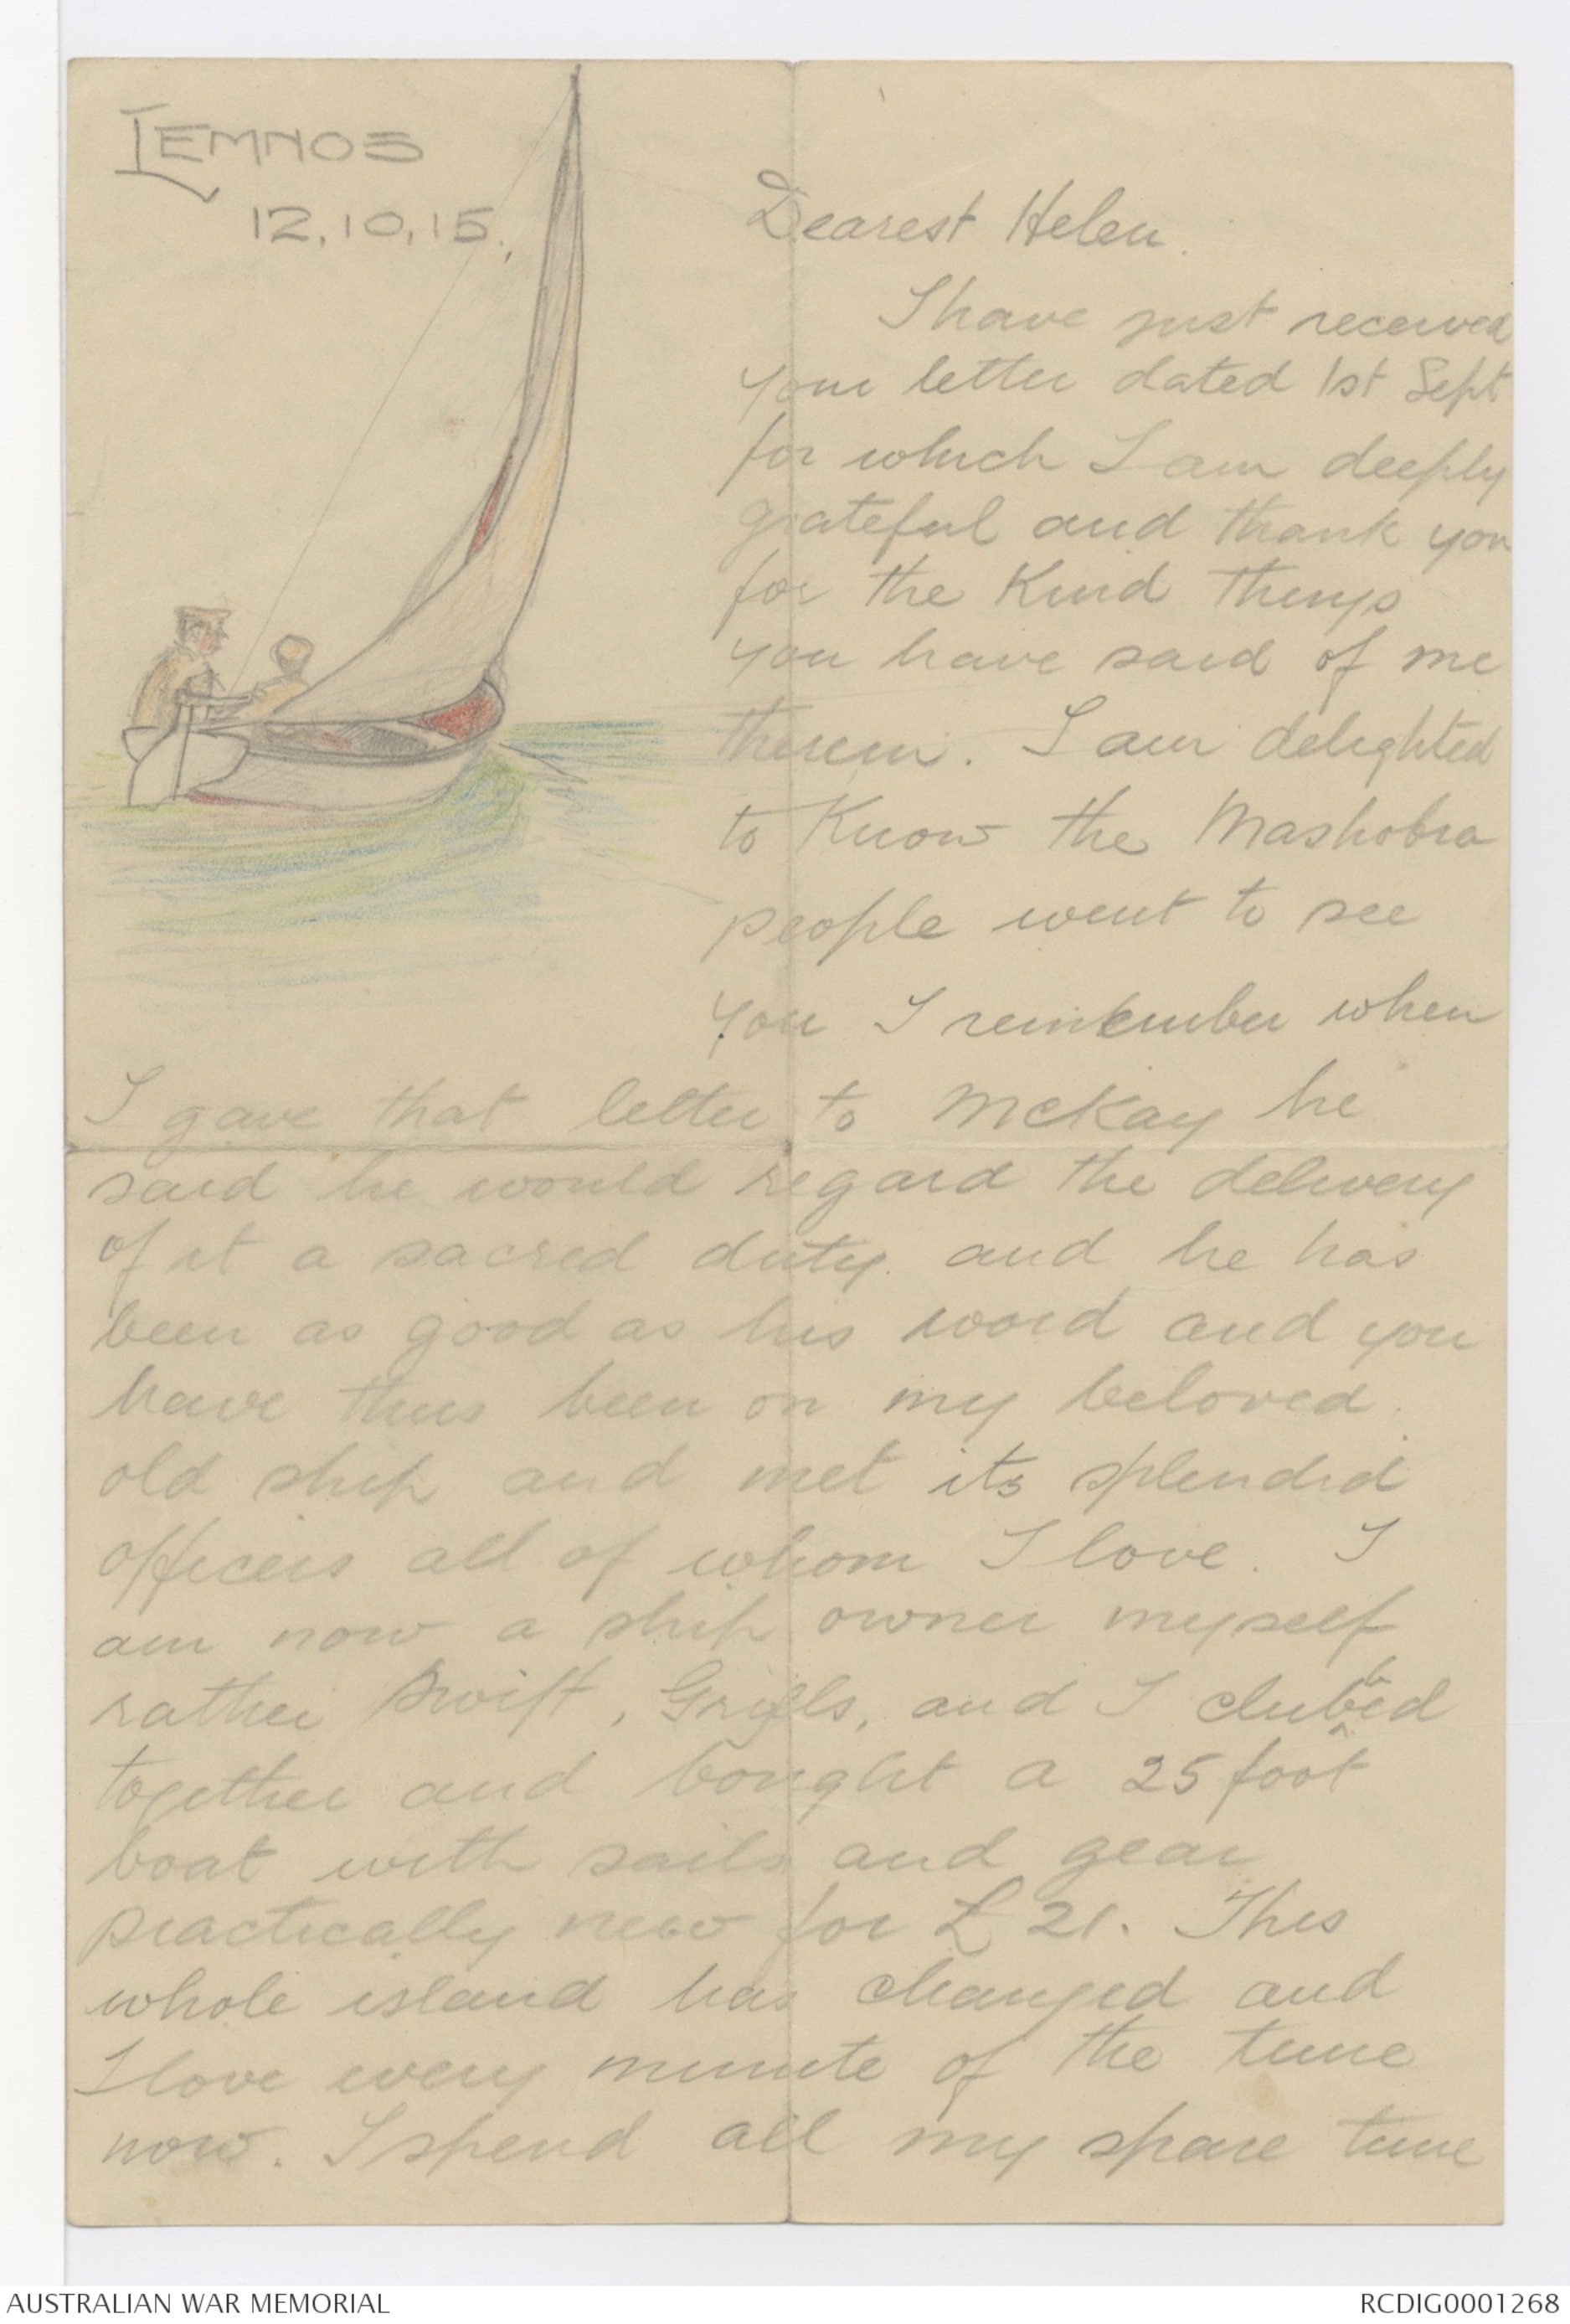 LEMNOS
12.10.15.
Dearest Helen.
I have just received
your letter dated 1st Sept
for which I am deeply
grateful and thank you
for the Kind things
you have said of me
therein. I am delighted
to Know the Mashobra
people went to see
you I remember when
I gave that letter to McKay he
said he would regard the delivery
of it a sacred duty. and he has
been as good as his word and you
have thus been on my beloved
old ship and met its splendid
officers all of whom I love. I
am now a ship owner myself
rather Swift, Grills, and I clubbed
together and bought a 25 foot
boat with sails and gear
practically new for £21. This
whole island has changed and
I love every minute of the time
now. I spend all my spare time
AUSTRALIAN WAR MEMORIAL
RCDIG0001268